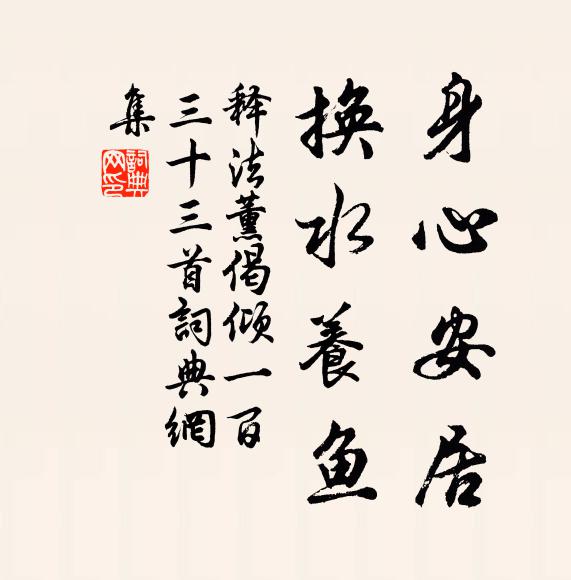 身心安居
换水養鱼
释法薰偈倾一百
三十三首詞典網
集
詞典
网印